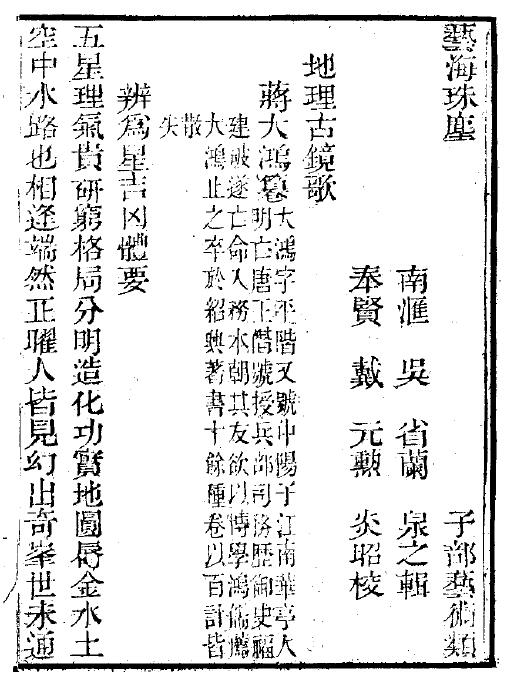 藝海珠塵 子部藝術類
南滙 吳 省蘭 泉之輯
奉賢 戴 元勲 炎昭校
地理古鏡歌
蔣大鴻纂
大鴻字平階又號中陽子江南華亭人
明亡唐王僭號授兵部司務歷御史福
建破遂亡命入務本朝其友欲以博學鴻儒薦
大鴻止之卒於紹興著書十餘種卷以百計皆
散
失
辨爲星吉凶體要
五星理氣貴研窮格局分明造化功實地圖辱金水土
空中水路也相逢端然正曜人皆見幻出奇峯世未通